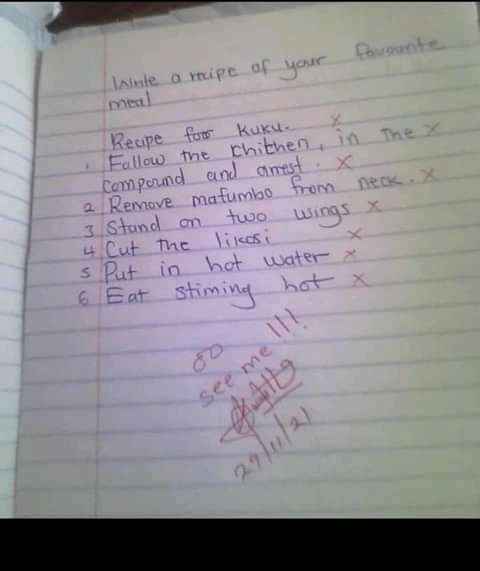 Write a recipe of your favourite
meal
Recipe foor Kuku. x
1. Follow the Chithen, in the x
compound and arrest. x
2 Remove mafumbo from neck. x
3 Stand on two wings x
4 Cut the likosi x
5 Put in hot water x
6 Eat stiming hot x
00
see me !!!
29/11/21